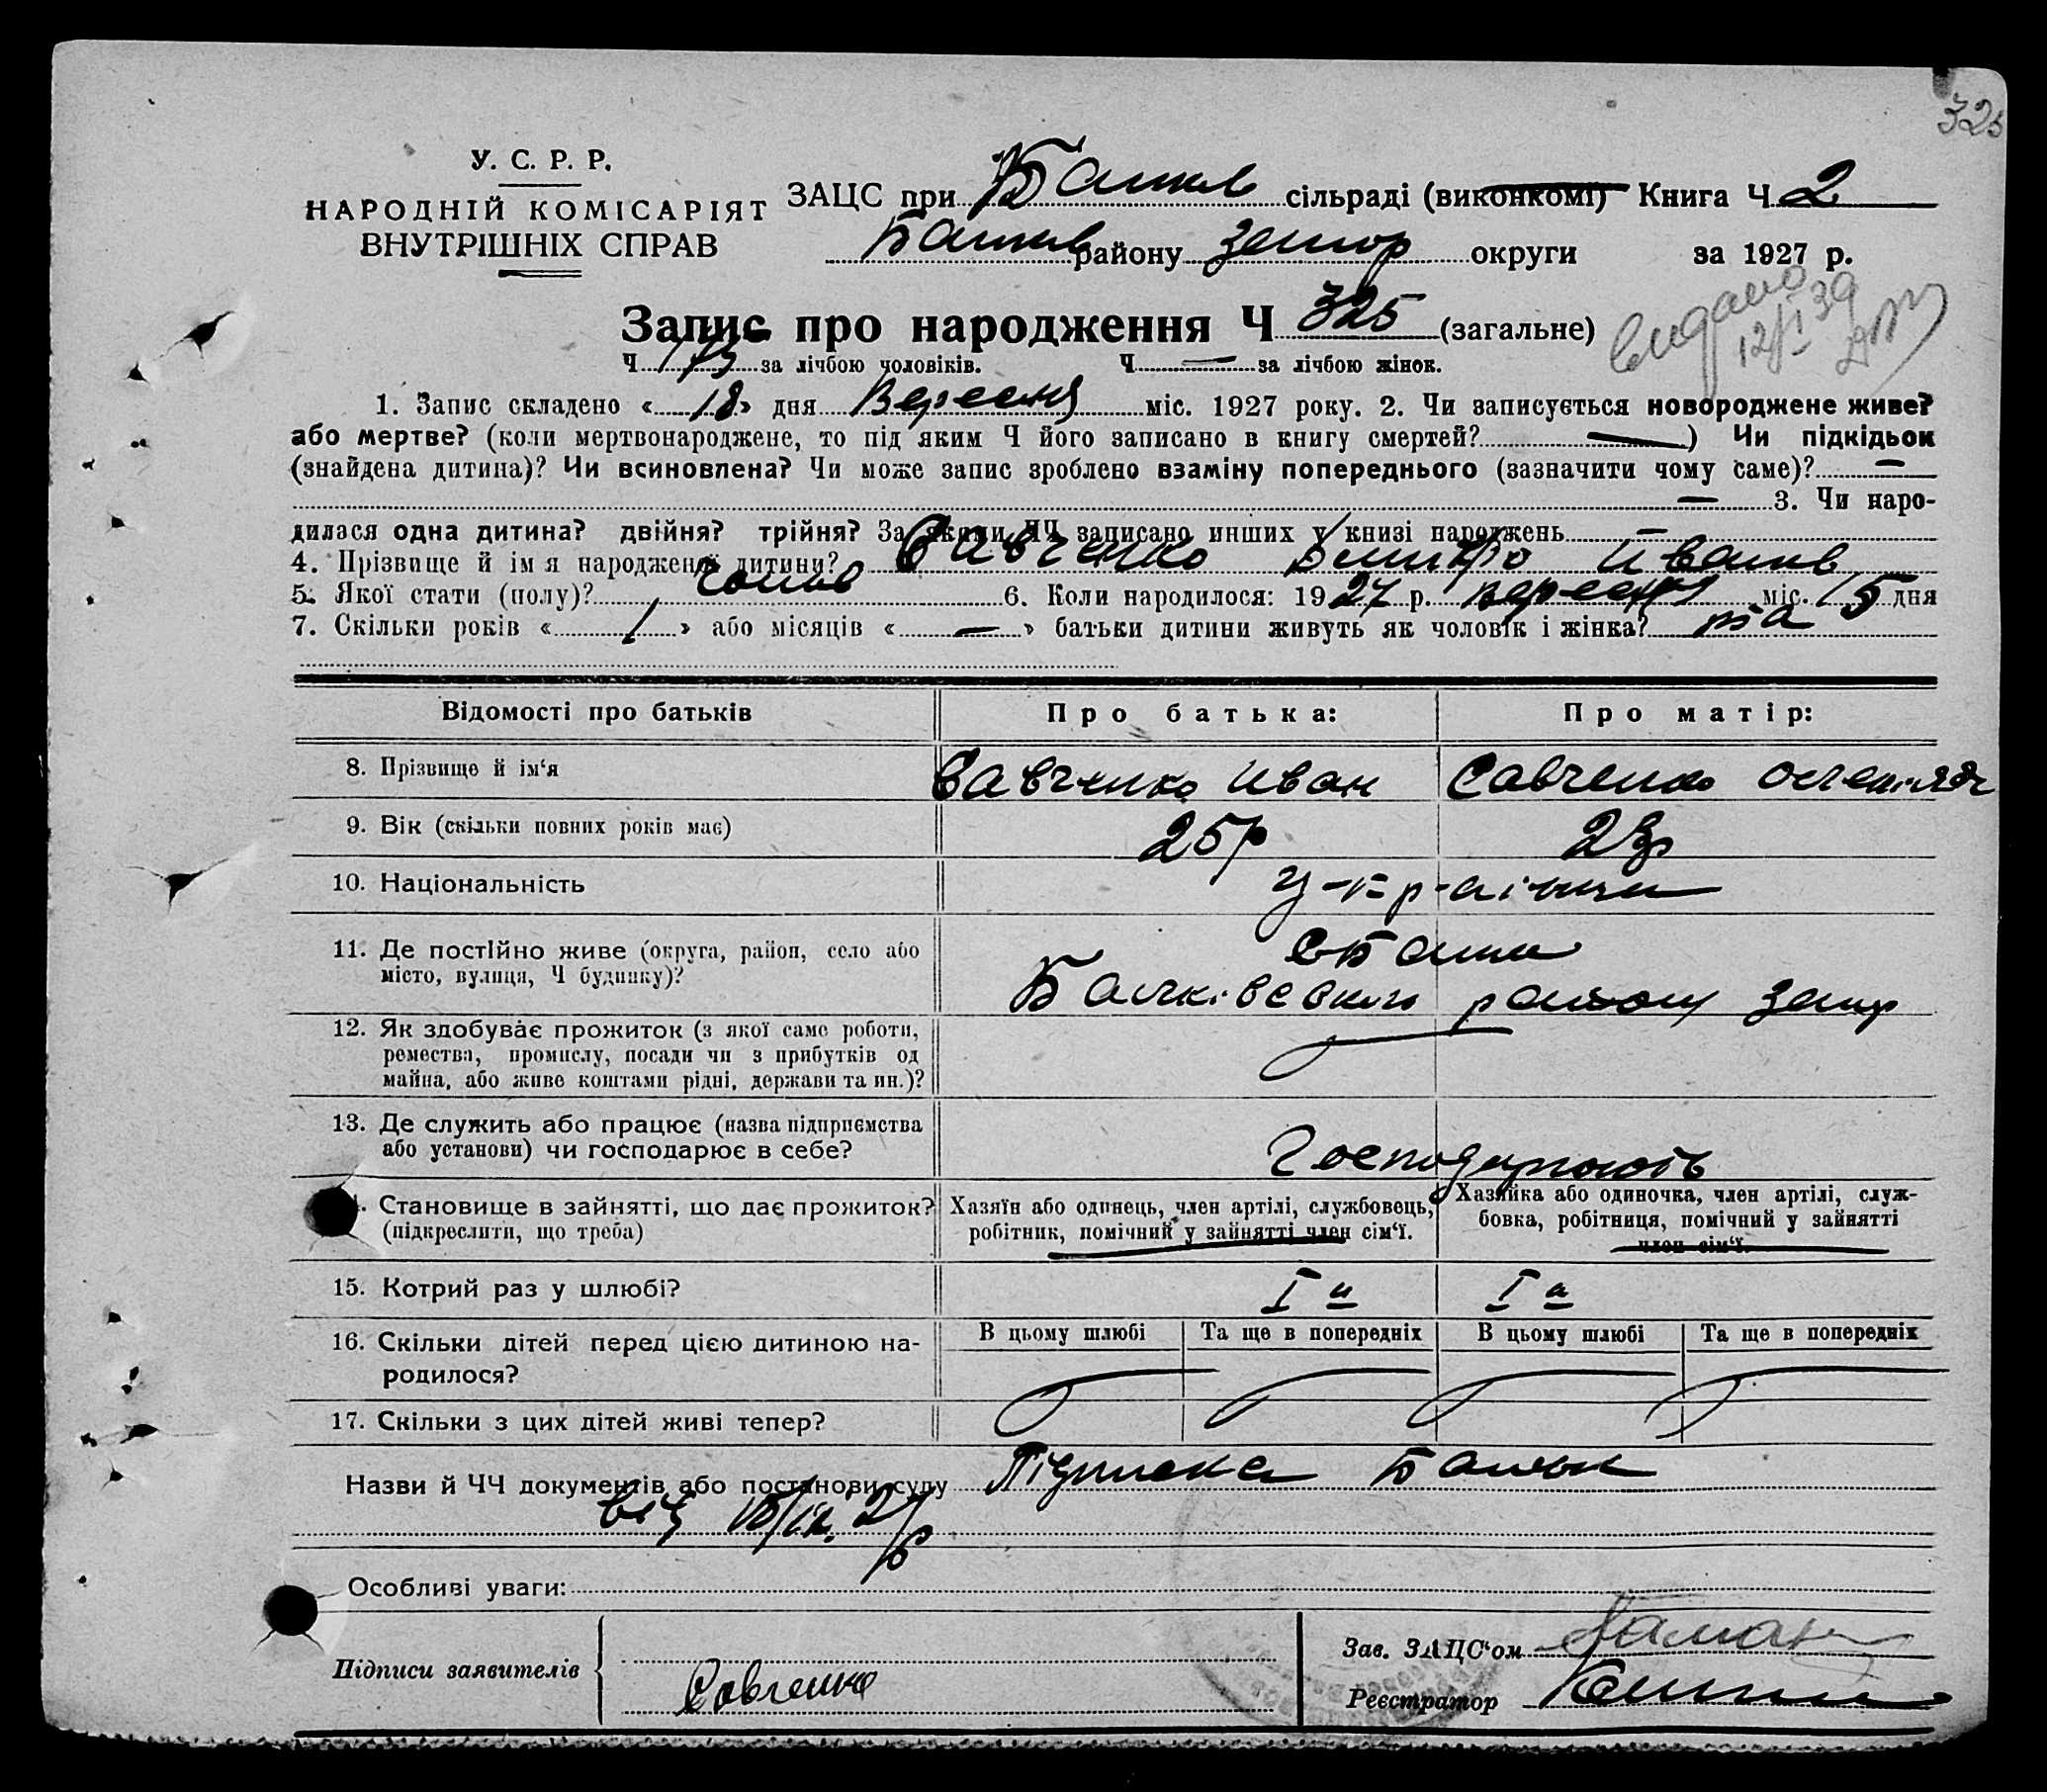 325
У. С. Р. Р.
НАРОДНІЙ КОМІСАРІЯТ
ВНУТРІШНІХ СПРАВ
ЗАЦС при сільраді (виконкомі) Книга Ч 2
району Запор округи за 1927 р.
Запис про народження Ч 325 (загальне)
видано 12/I 39
Ч 173 за лічбою чоловіків. Ч — за лічбою жінок.
1. Запис складено « 18 » дня Вересня міс. 1927 року. 2. Чи записується новороджене живе?
або мертве? (коли мертвонароджене, то під яким Ч його записано в книгу смертей? — ) Чи підкідьок
(знайдена дитина)? Чи всиновлена? Чи може запис зроблено взаміну попереднього (зазначити чому саме)? —
— 3. Чи наро-
дилася одна дитина? двійня? трійня? За якими ЧЧ записано инших у книзі народжень
4. Прізвище й імʼя народженої дитини? Савченко Дмитро Иванов
5. Якої стати (полу)? чолов 6. Коли народилося: 1927 р. вересня міс. 15 дня
7. Скільки років « 1 » або місяців « — » батьки дитини живуть як чоловік і жінка? та
Відомості про батьків Про батька: Про матір:
8. Прізвище й ім‘я Савченко Иван Савченко
9. Вік (скільки повних років має) 25р 23р
10. Національність Українци
11. Де постійно живе (округа, район, село або
місто, вулиця, Ч будинку)?
району Запор
12. Як здобуває прожиток (з якої саме роботи,
ремества, промислу, посади чи з прибутків од
майна, або живе коштами рідні, держави та ин.)?
13. Де служить або працює (назва підприємства
або установи) чи господарює в себе? Господарюють
14. Становище в зайнятті, що дає прожиток?
(підкреслити, що треба)
Хазяїн або одинець, член артілі, службовець,
робітник, помічний у зайнятті член сім‘ї.
Хазяйка або одиночка, член артілі, служ-
бовка, робітниця, помічний у зайнятті
член сім‘ї.
15. Котрий раз у шлюбі? I й I а
16. Скільки дітей перед цією дитиною на-
родилося?
В цьому шлюбі Та ще в попередніх В цьому шлюбі Та ще в попередніх
17. Скільки з цих дітей живі тепер?
Назви й ЧЧ документів або постанови суду Підписка
від 18/IX 27р
Особливі уваги:
Підписи заявителів Савченко
Зав. ЗАЦС‘ом
Реєстратор